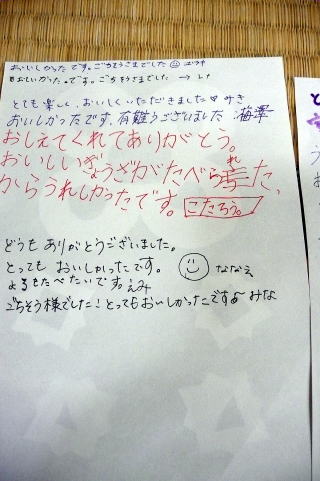 おいしかったです。ごちそうさまでした☺
おいしかった。です。ごちそうさまでした →
とても楽しく、おいしくいただきました みき
おいしかったです、有難うございました 梅澤
おしえてくれてありがとう。
おいしいぎょうざがたべられた
からうれしかったです。こたろう。
どうも ありがとうございました。
とっても おいしかったです。 ☺ ななえ
よるもたべたいです。えみ
ごちそう様でした!とってもおいしかったです みな